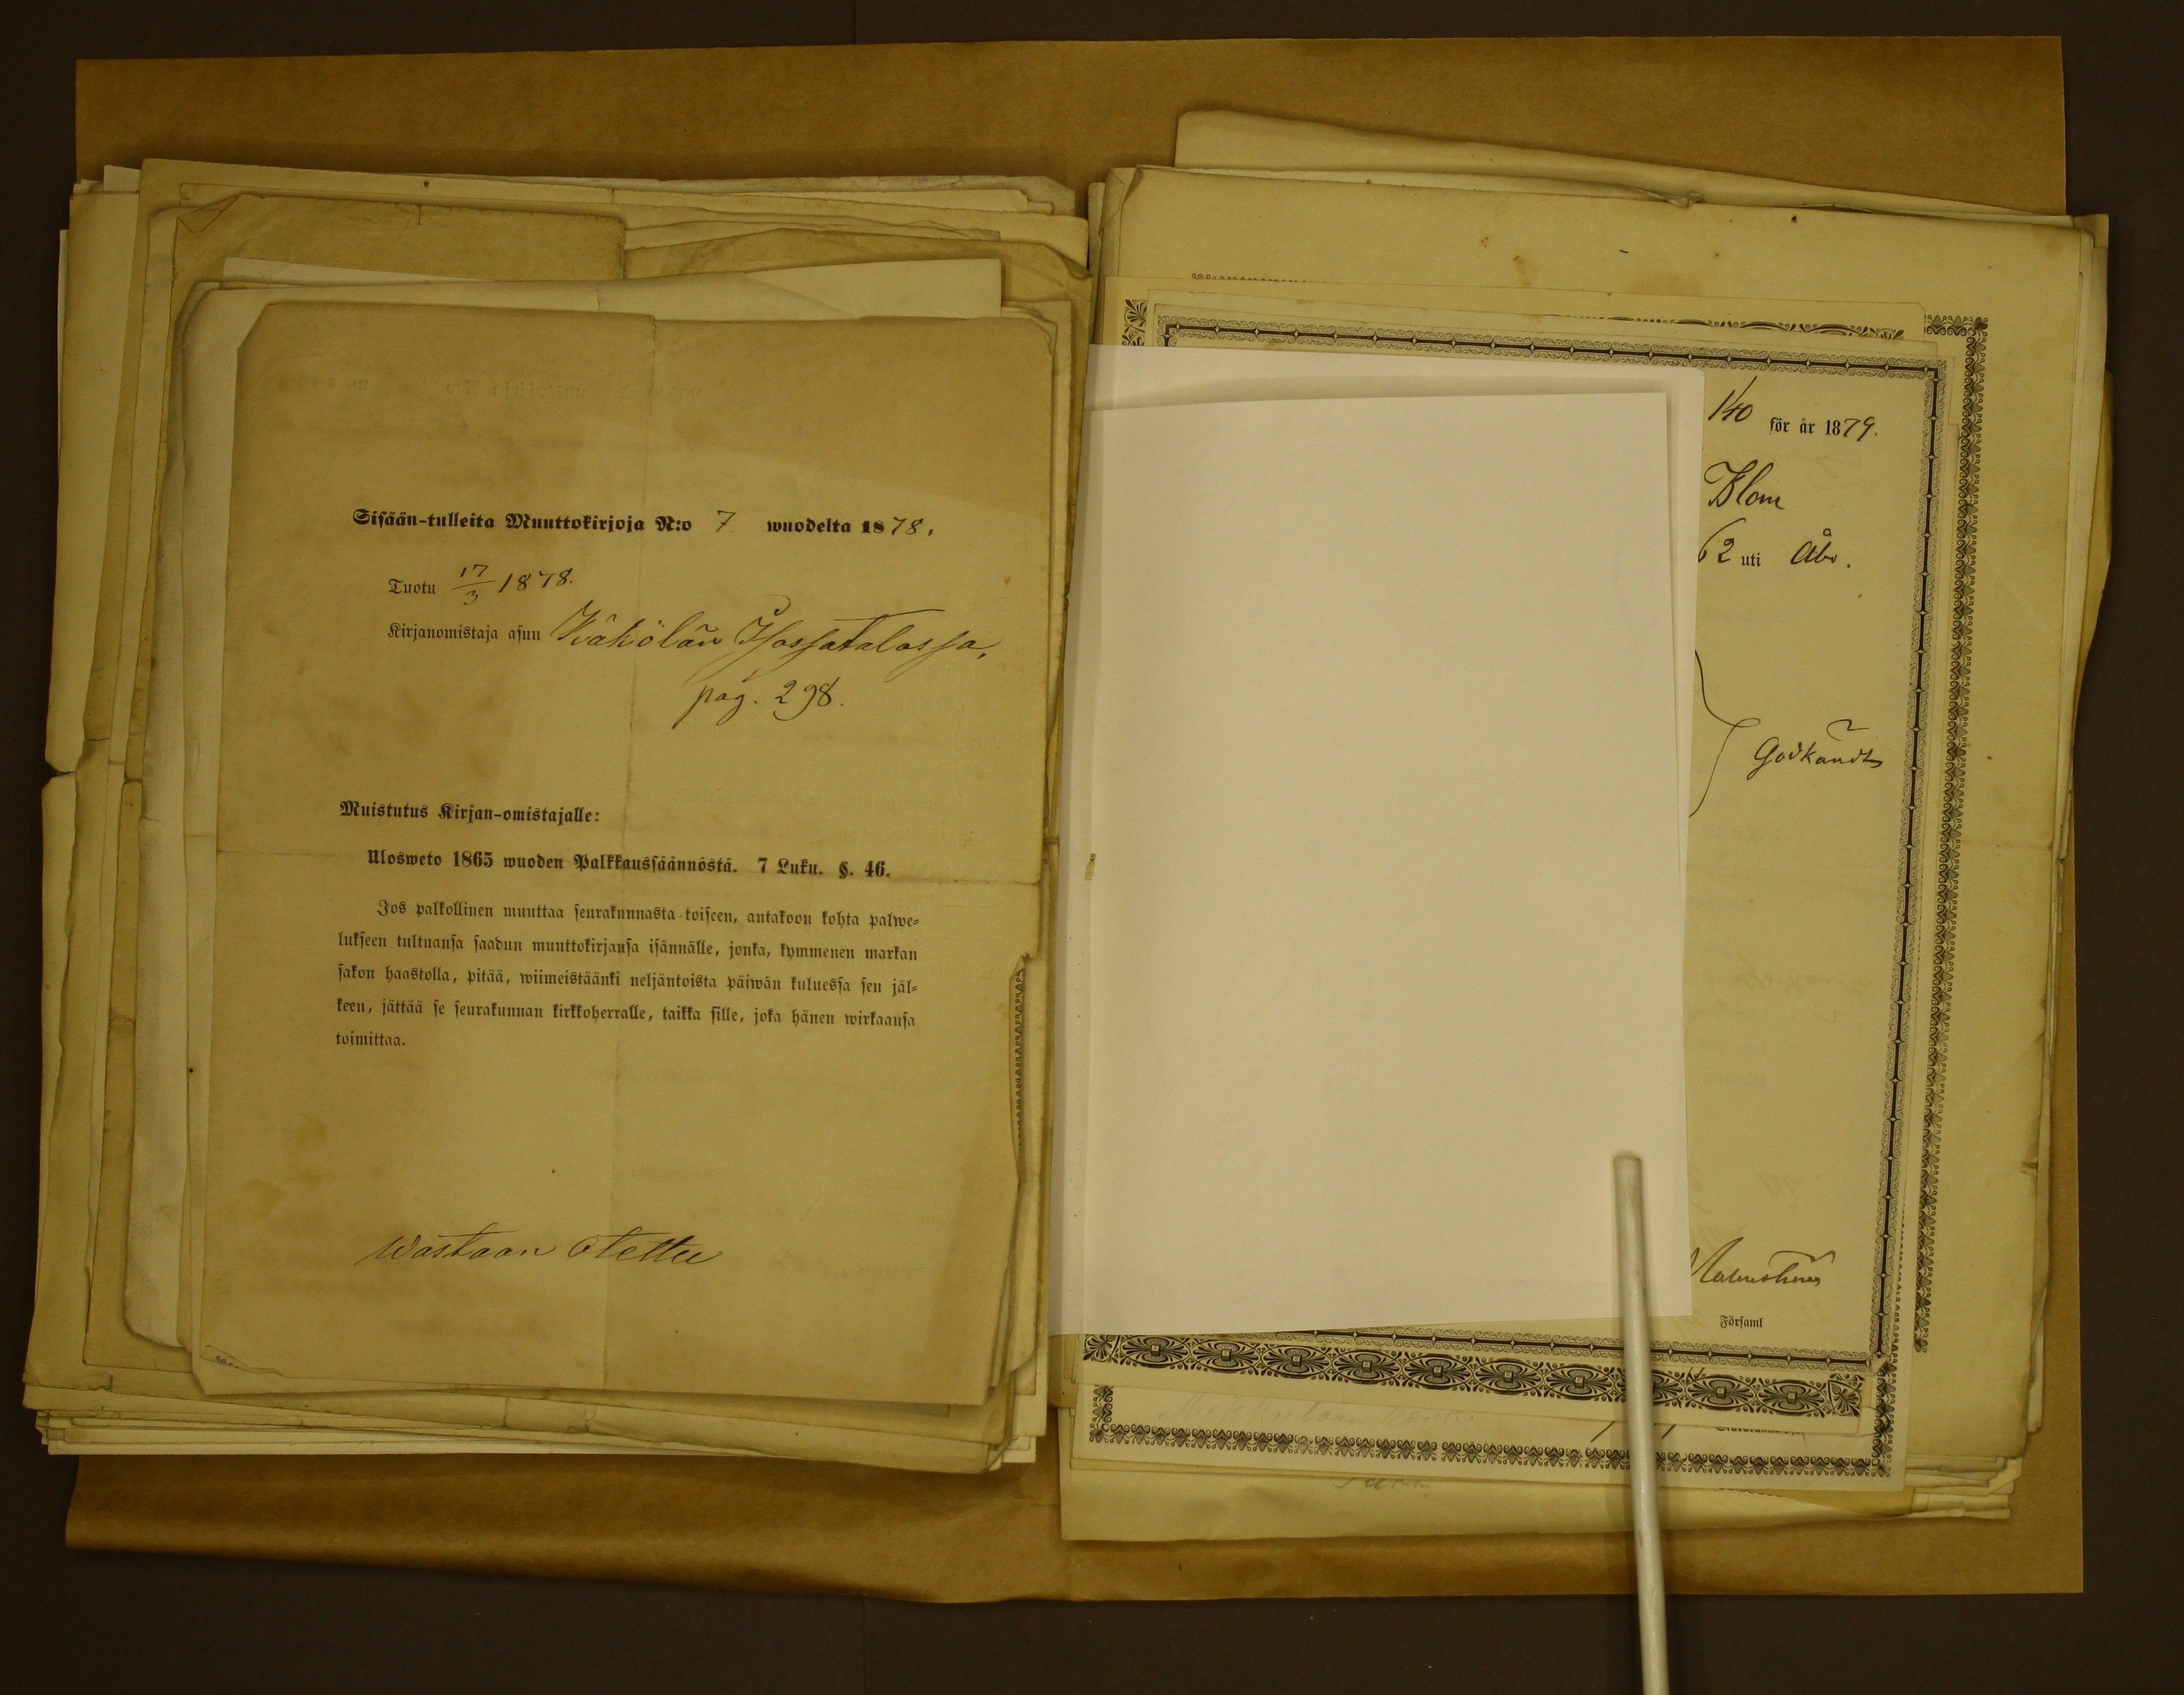 Sisään-tulleita Muuttokirjoja N:o 7 wuodelta 1878.
Tuotu 17/3 1878.
Kirjanomistaja asuu Käkölän Isossatalossa,
pag. 298.
Muistutus Kirjan-omistajalle:
Ulosweto 1865 wuoden Palkkaussäännöstä. 7 Luku. §. 46.
Jos palkollinen muuttaa seurakunnasta toiseen, antakoon kohta palwe=
lukseen tultuansa saadun muuttokirjansa isännälle, jonka, kymmenen markan
sakon haastolla, pitää, wiimeistäänki neljäntoista päiwän kuluessa sen jäl=
keen, jättää se seurakunnan kirkkoherralle, taikka sille, joka hänen wirkaansa
toimittaa.
Wastaan otettu
140 för år 1879.
Blom
62 uti Åbo.
Godkändt
Församl